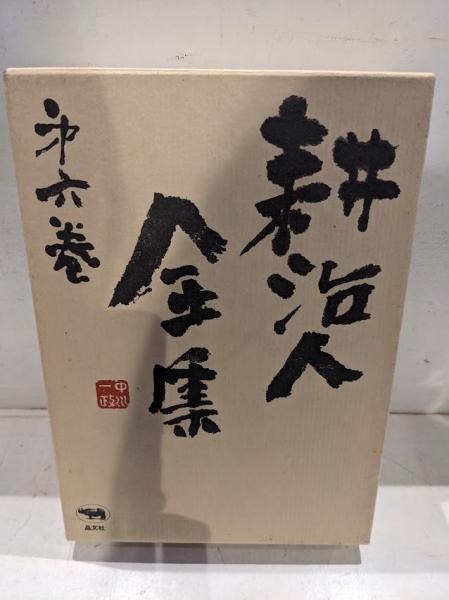 耕治人
全集
第六巻
中川
一政
晶文社